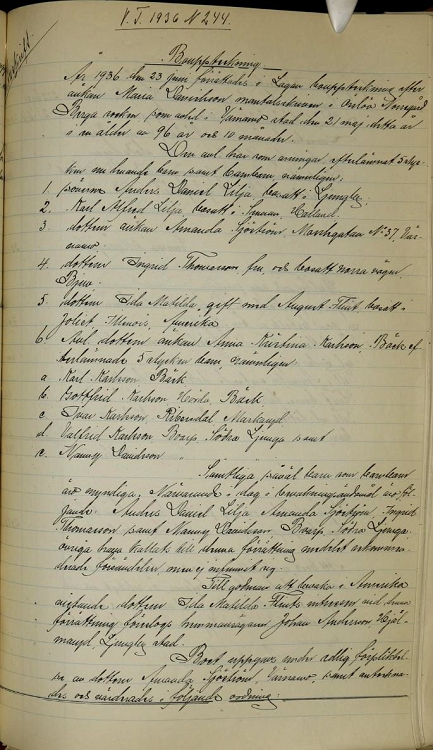 V. T. 1936 N 244.
Bouppteckning
År 1936 den 23 juni förrättades i Lagan bouppteckning efter
änkan Maria Danielsson mantalsskriven i
Berga socken som avled i Värnamo stad den 21 maj detta år
i en ålder av 96 år och 10 månader.
Den avl. har som arvingar efterlämnat 5 styc-
ken levande barn samt barnbarn, nämligen
1. sonen Anders Daniel Lilja, bosatt i Ljungby.
2. Karl Alfred Lilja, bosatt i Halland.
3. dottern änkan Amanda Sjöström, N:o 37 Vär-
namo
4. dottern Ingrid Thomasson fru och bosatt norra vägen
5. dottern Ida Matilda, gift med August Flint, bosatt i
Joliet, Illinois, Amerika
6. Avl. dottern änkan Anna Kristina Karlsson, Bäck ef-
terlämnade 5 stycken barn, nämligen
a Karl Karlsson Bäck
b. Gottfrid Karlsson Bäck
c Ivar Karlsson, Markaryd
d Valfrid Karlsson Södra Ljunga samt
e. Nanny Davidsson "
Samtliga såväl barn som barnbarn
är myndiga, Närvarande i dag i
jande Anders Daniel Lilja Amanda Sjöström, Ingrid
Thomasson samt Nanny Davidsson Södra Ljunga
övriga kallats till denna förrättning medelst rekommen-
derade försändelser men ej infunnit sig.
Till godman att bevaka i Amerika
vistande dottern Ida Matilda Flints intressen vid denna
förrättning föreslogs hemmansägaren Johan Andersson
Ljungby stad.
Boet uppgavs under edlig förpliktel-
se av dottern Amanda Sjöström, Värnamo, samt anteckna-
des och värderades i följande ordning: